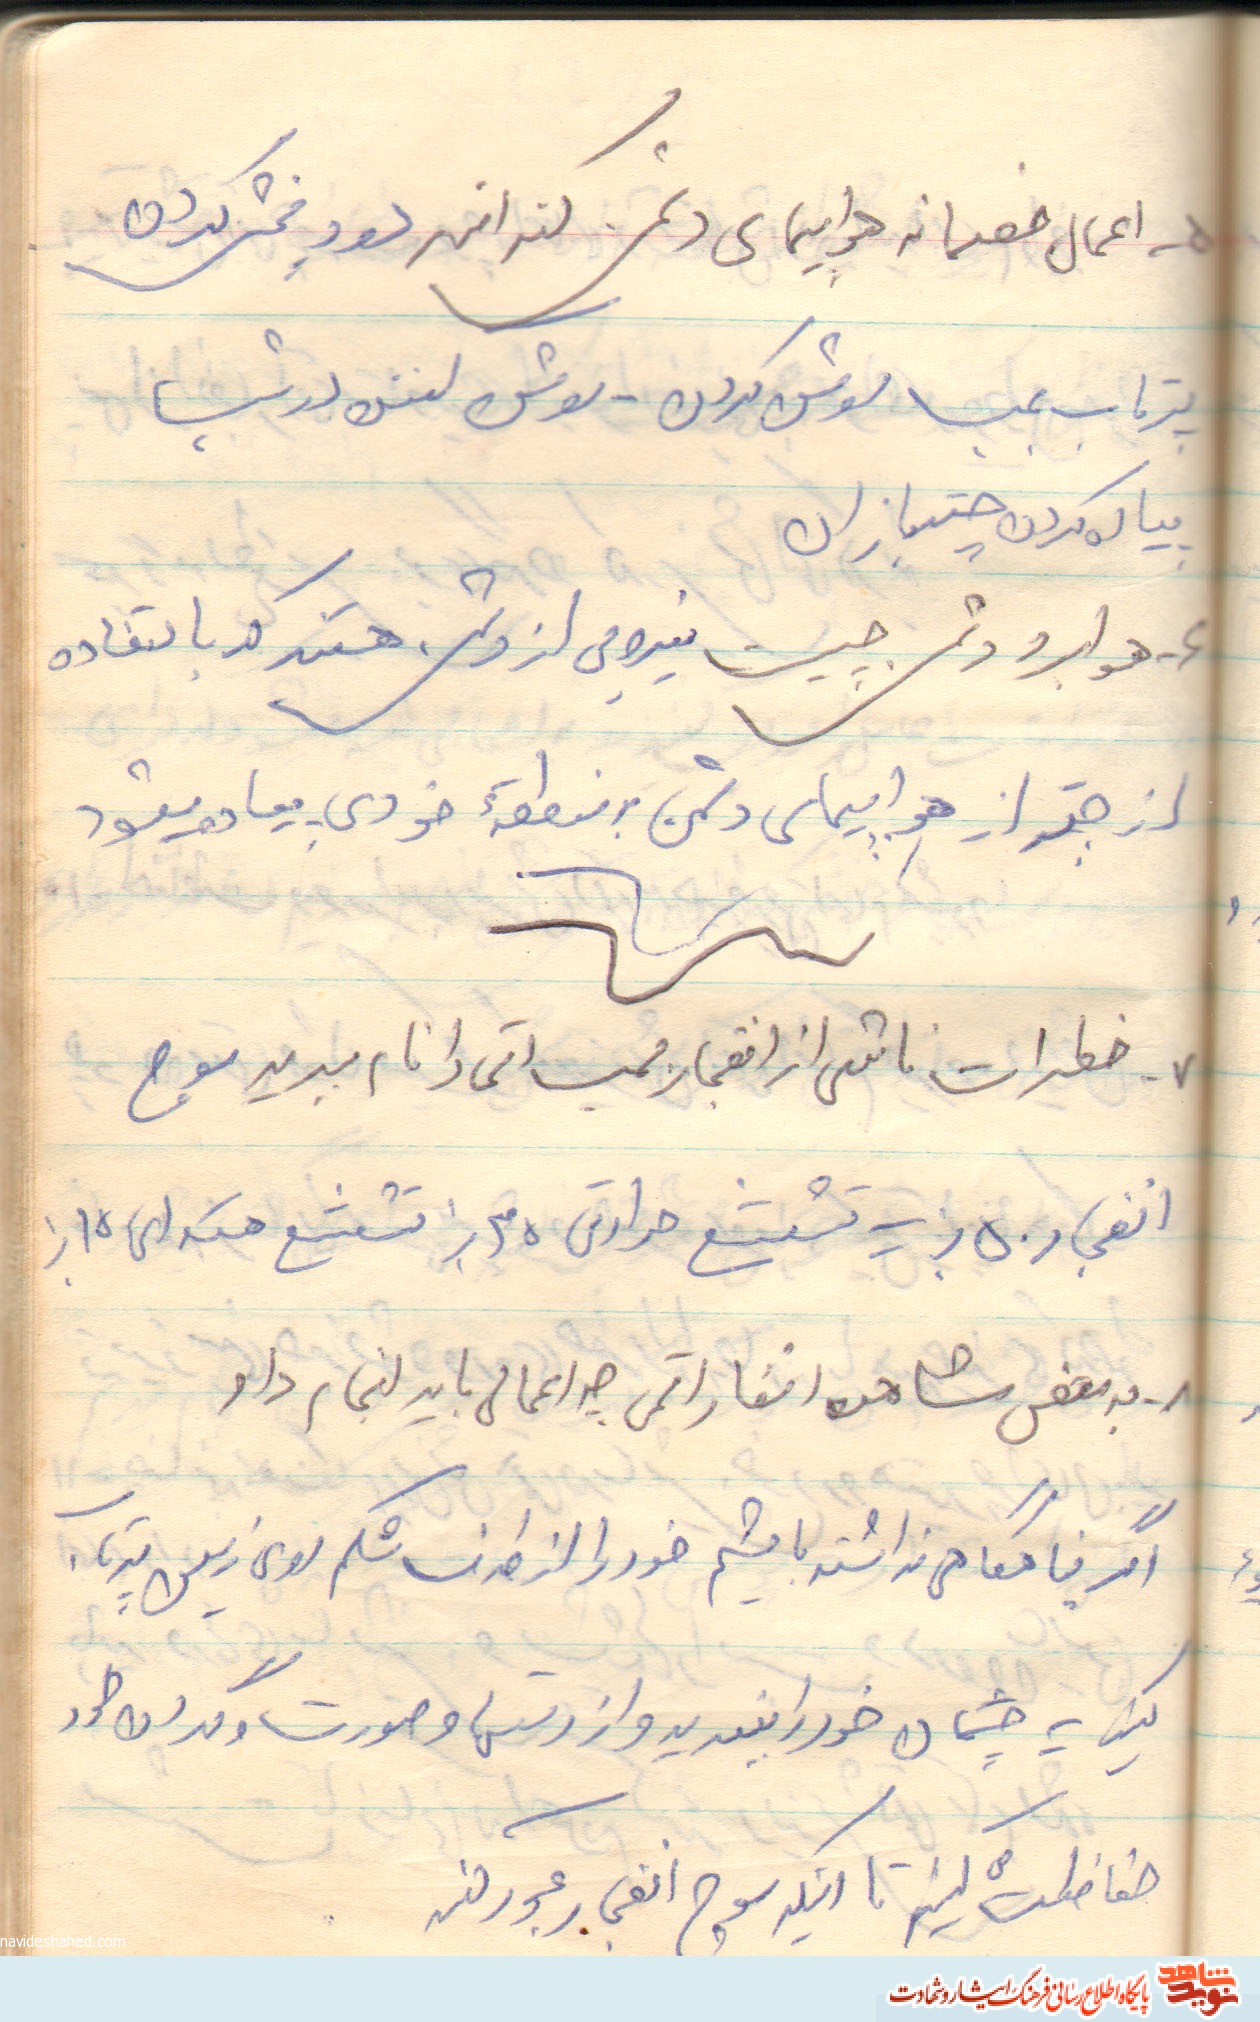 ۵- اعمال خصمانه هواپیمای دشمن کدامند دود پخش کردن
پرتاب بمب روشن کردن - روشن کننده در شب
پیاده کردن چتربازان
۶- هوابرد دشمن چیست نیروهایی از دشمن هستند که با استفاده
از چتر از هواپیمای دشمن به منطقهٔ خودی پیاده میشود
۷- خطرات ناشی از انفجار بمب اتمی را نام ببرید موج
انفجار ۵۰٪ تشعشع حرارتی ۳۵٪ تشعشع هسته‌ای ۱۵٪
۸- به محض مشاهده انفجار اتمی چه اعمالی باید انجام داد
اگر پناهگاهی نداشته باشیم خود را از طرف شکم روی زمین پرتاب
کنید چشمان خود را ببندید و از دستها و صورت و گردن خود
حفاظت کنیم تا اینکه موج انفجار عبور کند
navideshahed.com
نوید شاهد
پایگاه اطلاع رسانی فرهنگ ایثار و شهادت